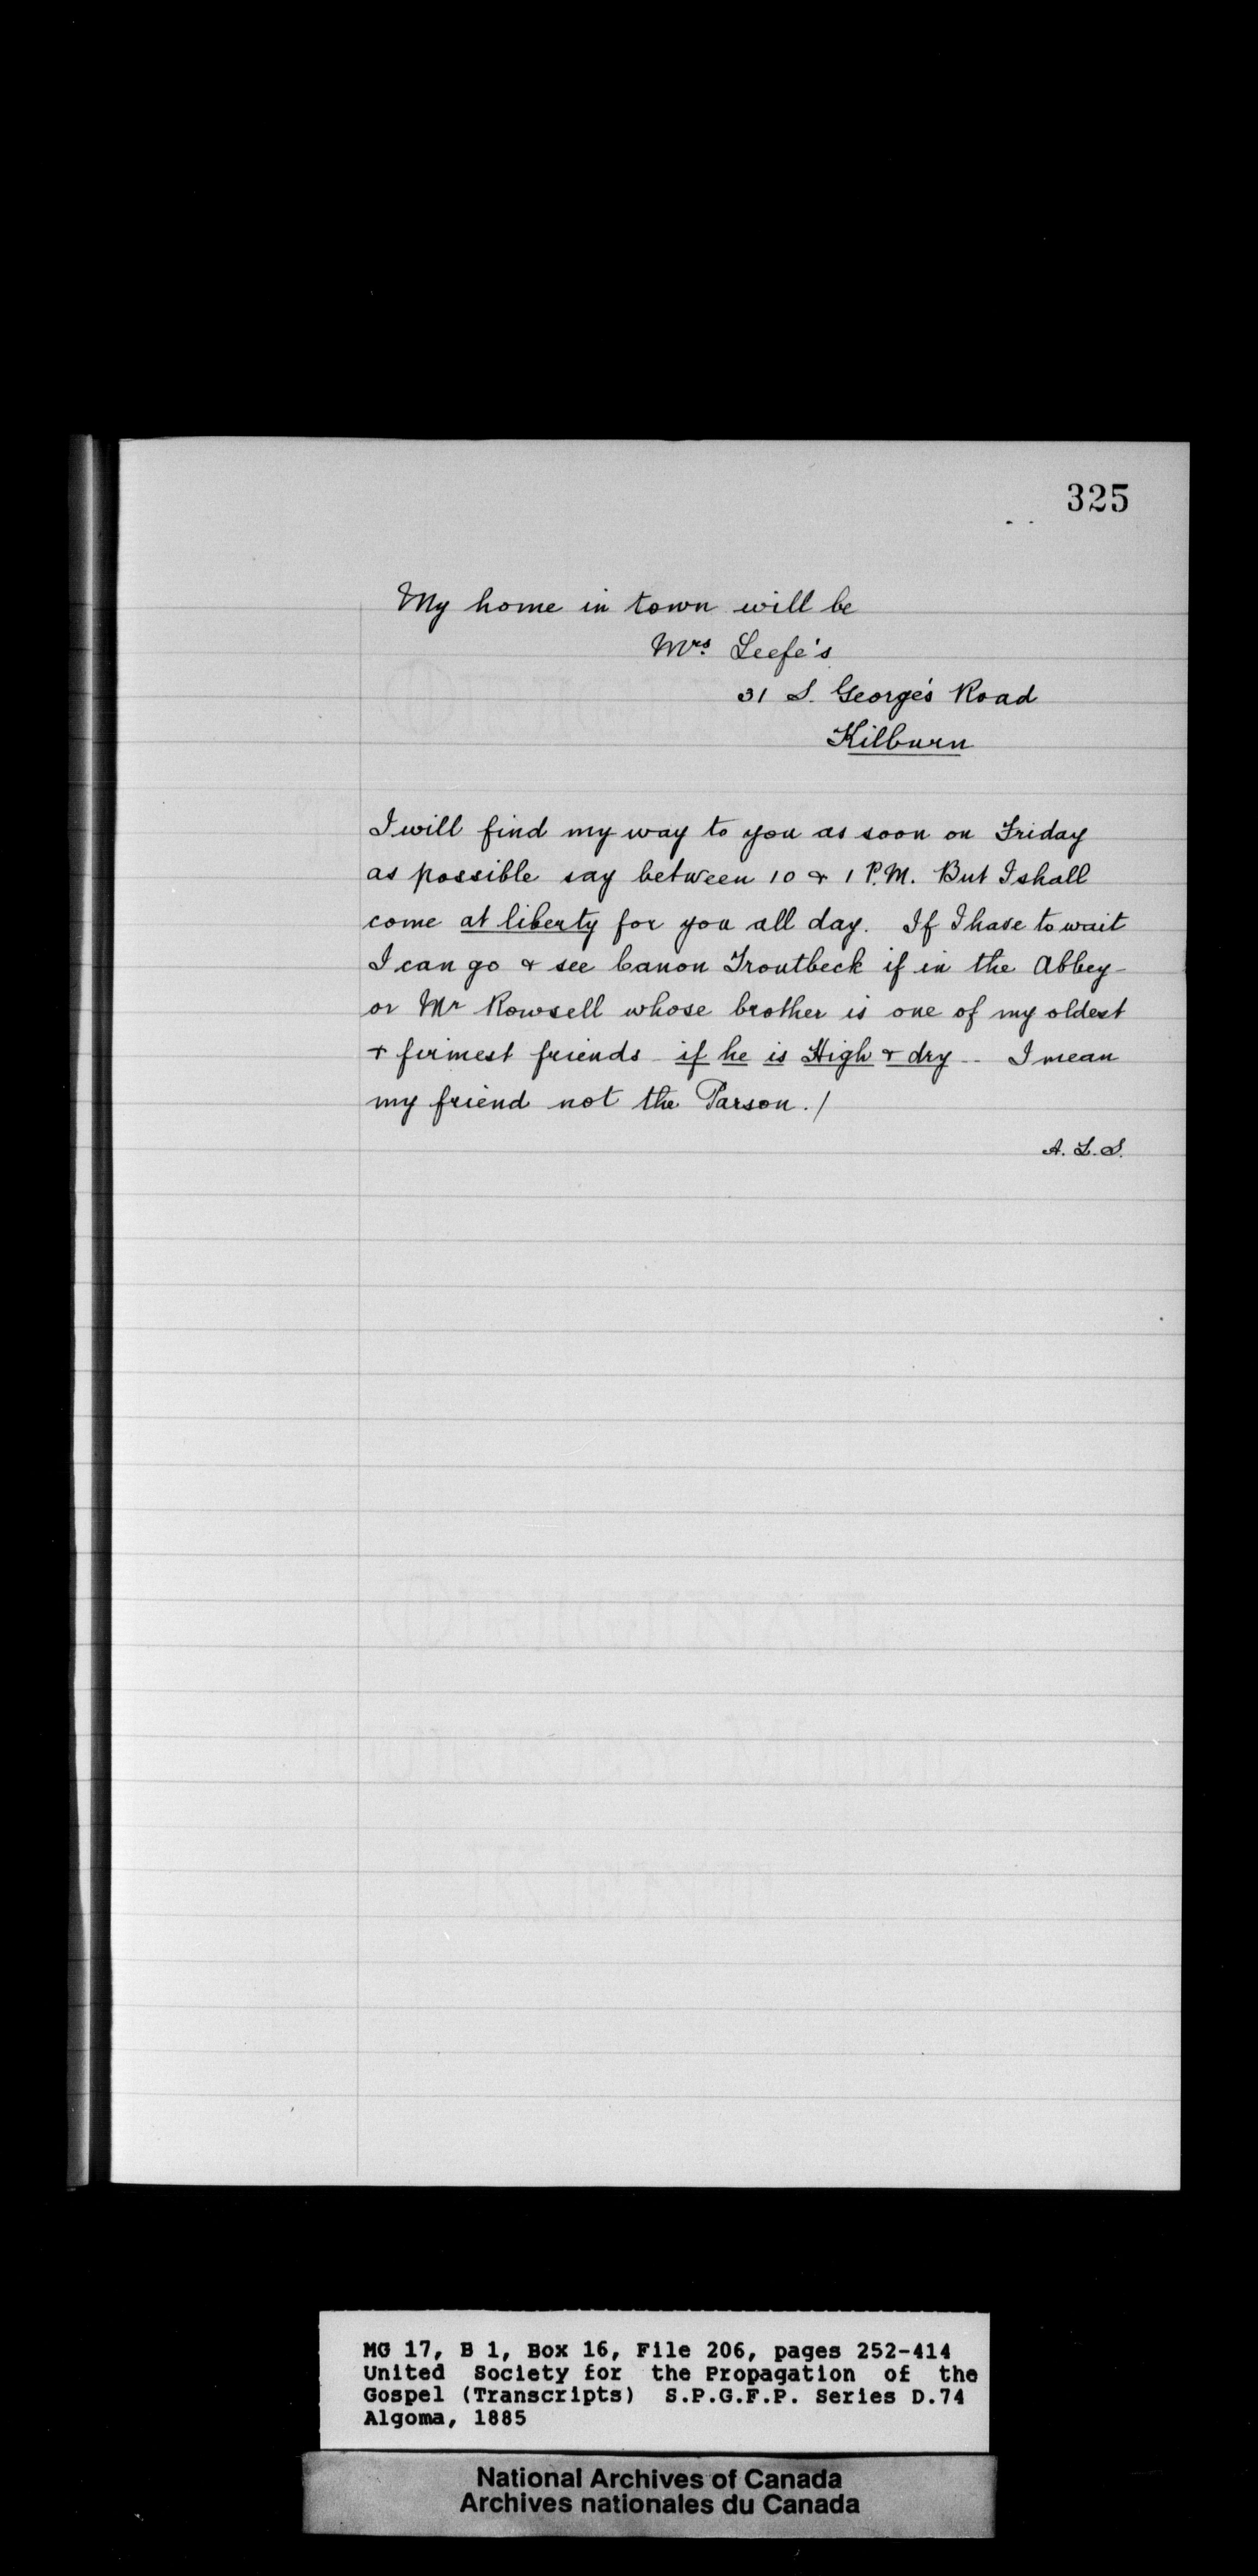 325
My home in town will be
Mrs. Leefe's
31 S. George's Road
Kilburn
I will find my way to you as soon on Friday
as possible say between 10 & 1 P.M. But I shall
come at liberty for you all day. If I have to wait
I can go & see Canon Troutbeck if in the Abbey-
or Mr Rowsell whose brother is one of my oldest
& firmest friends - if he is High & dry -- I mean
my friend not the Parson. /
A. L. S.
MG 17, B 1, Box 16, File 206, pages 252-414
United Society for the Propagation of the
Gospel (Transcripts) S.P.G.F.P. Series D.74
Algoma, 1885
National Archives of Canada
Archives nationales du Canada